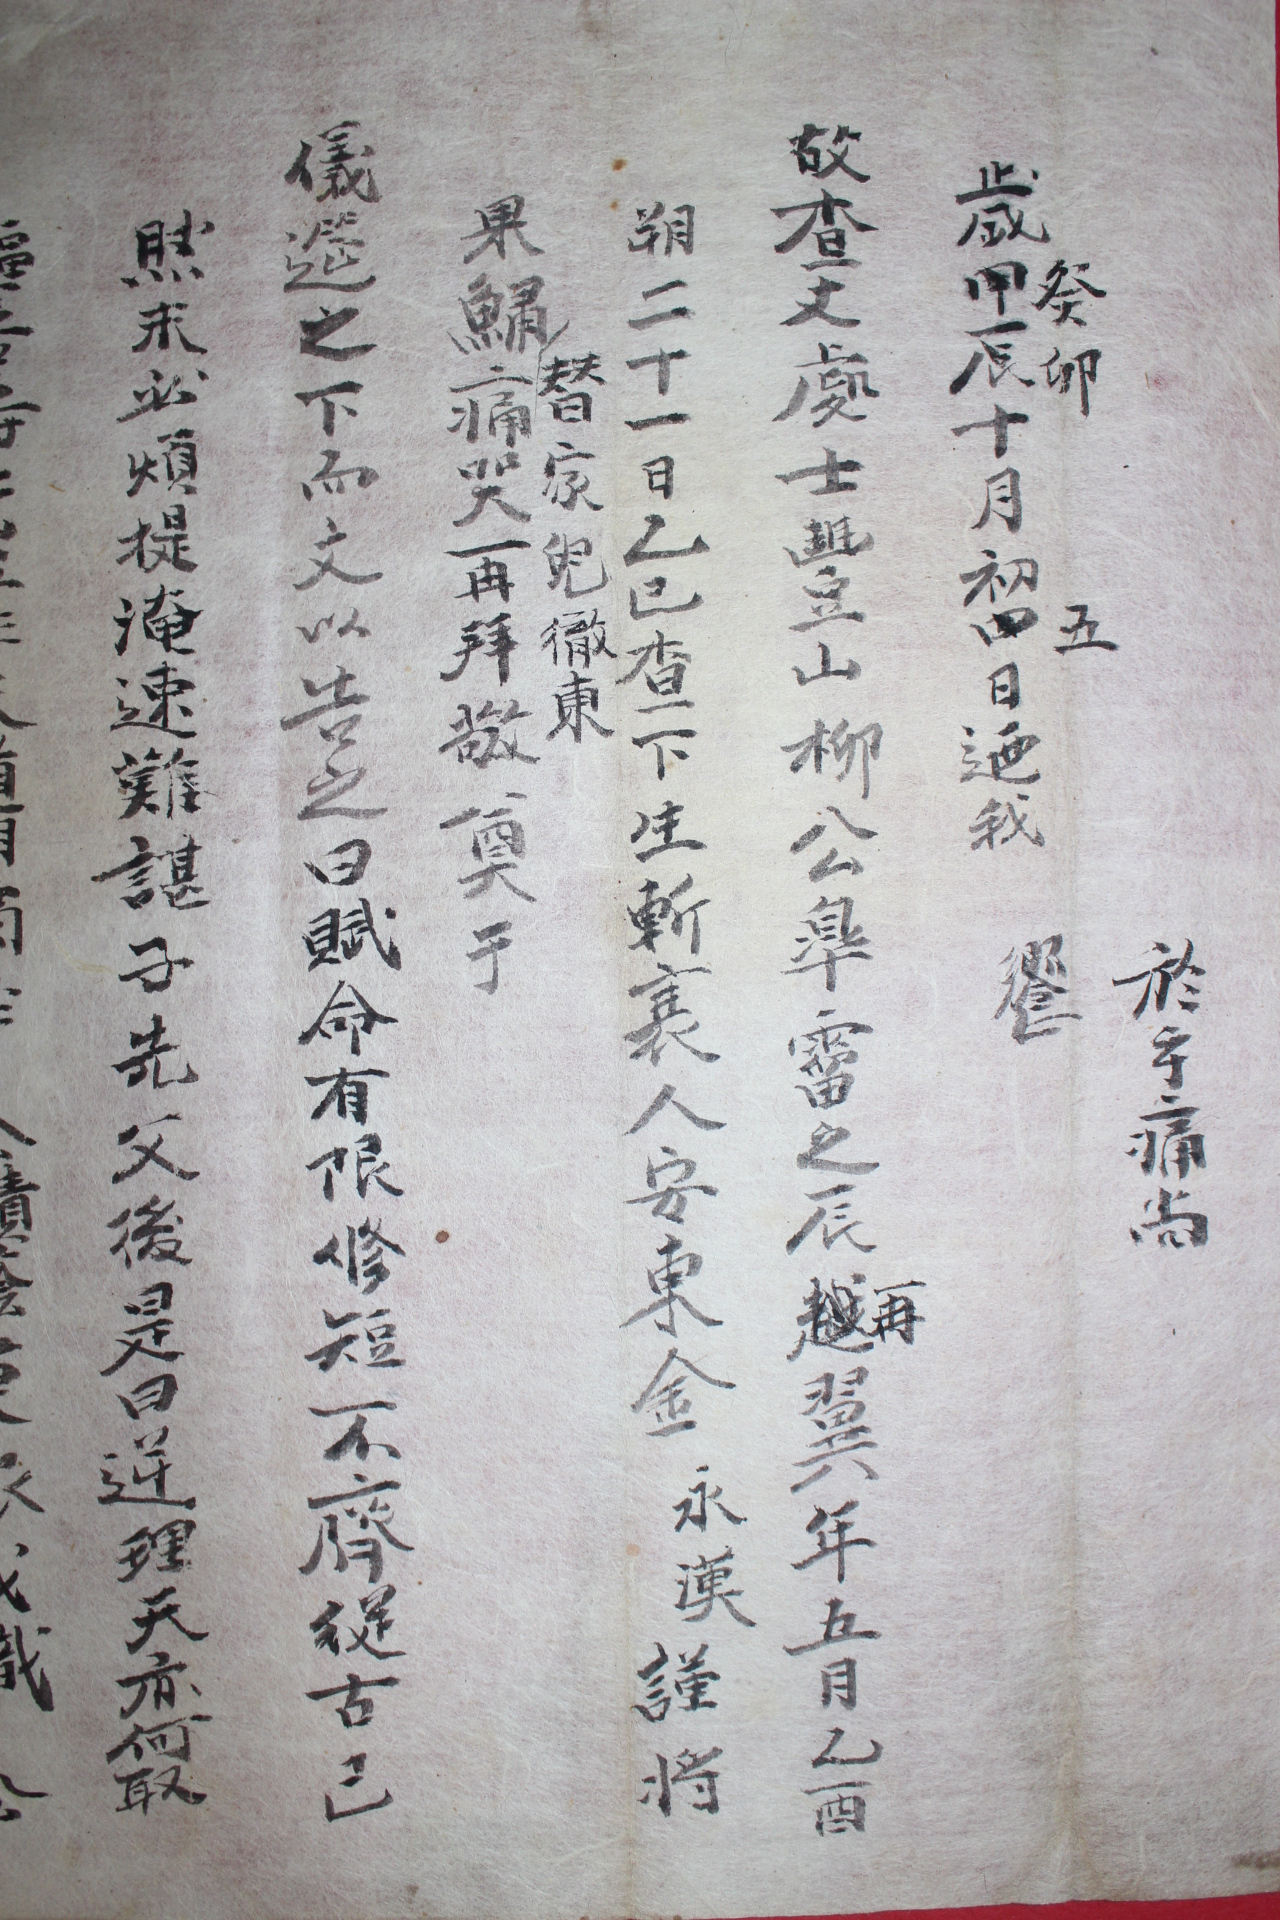 於乎痛尚
饗
癸卯 五
歲甲辰十月初四日迺我
再
故査丈處士豊山柳公皐霤之辰越翼六年五月乙酉
朔二十一日乙巳査下生斬衰人安東金永漢謹將
替家兒徹東
果鱐痛哭再拜敬奠于
儀邐之下而文以告之曰賦命有限修短不齊從古已
然未必煩提淹速難諶子先父後是曰逆理天亦何取